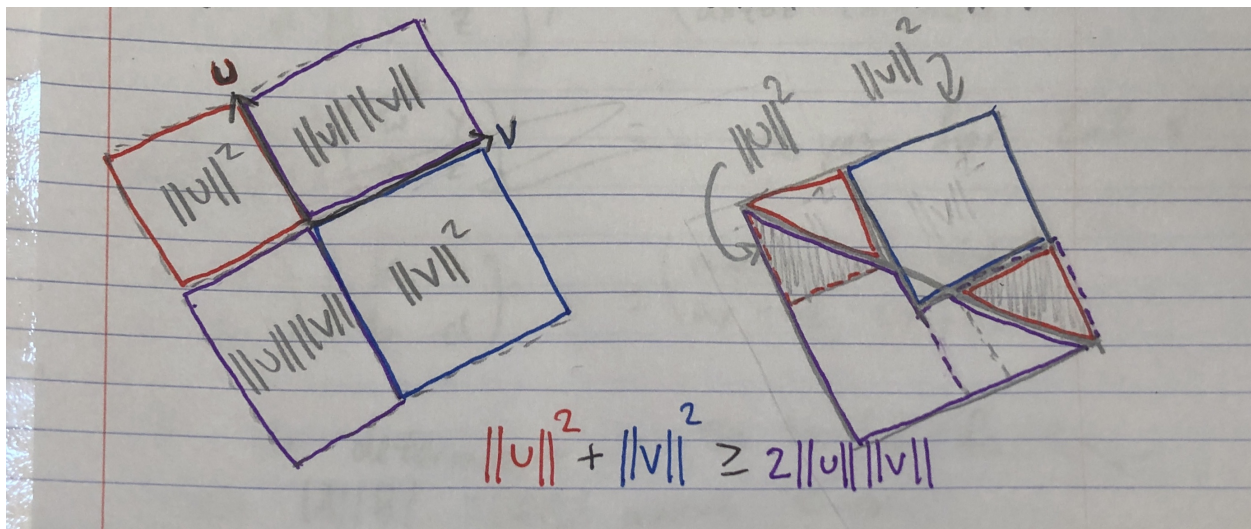 U
||u||||v||
V
||u||²
||v||²
||u||||v||
||v||²
||u||²
||u||² + ||v||² ≥ 2||u||||v||